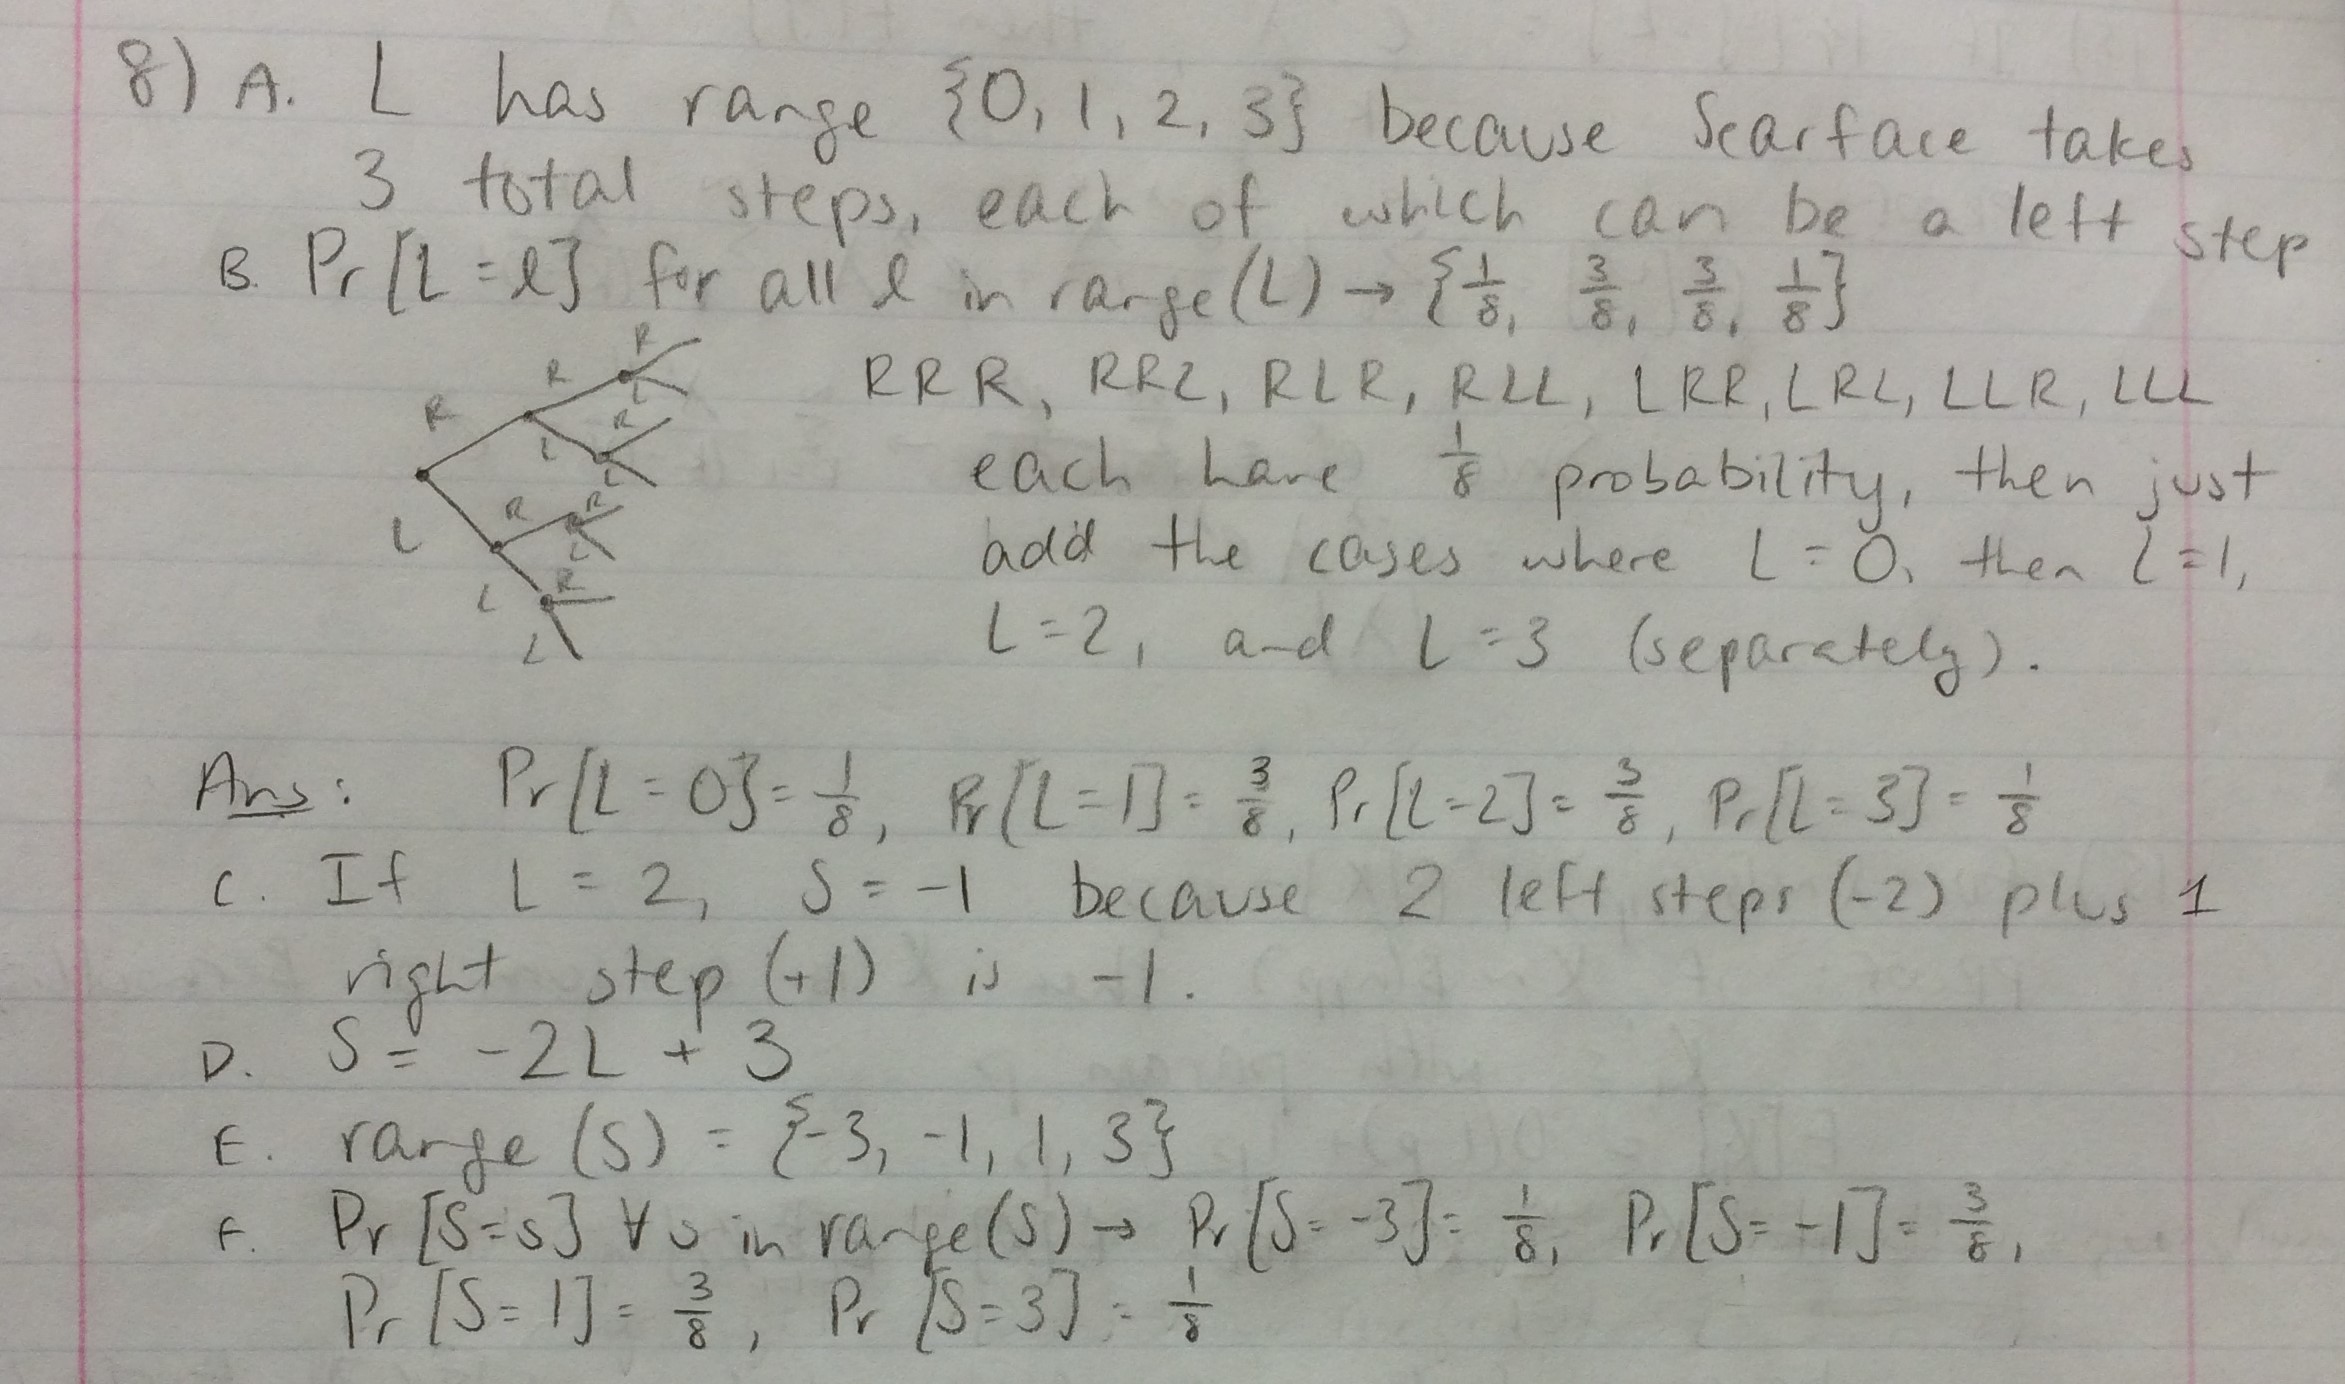 8) A. L has range {0, 1, 2, 3} because Scarface takes
3 total steps, each of which can be a left step
B. Pr[L=l] for all l in range(L) → {1/8, 3/8, 3/8, 1/8}
R R L R R L R L R R L L R L
RRR, RRL, RLR, RLL, LRR, LRL, LLR, LLL
each have 1/8 probability, then just
add the cases where L=0, then L=1,
L=2, and L=3 (separately).
Ans: Pr[L=0]=1/8, Pr[L=1]=3/8, Pr[L=2]=3/8, Pr[L=3]=1/8
C. If L=2, S=-1 because 2 left steps (-2) plus 1
right step (+1) is -1.
D. S= -2L + 3
E. range (S) = {-3, -1, 1, 3}
F. Pr[S=s] ∀ s in range(S) → Pr[S=-3]=1/8, Pr[S=-1]=3/8,
Pr[S=1]=3/8, Pr[S=3]=1/8